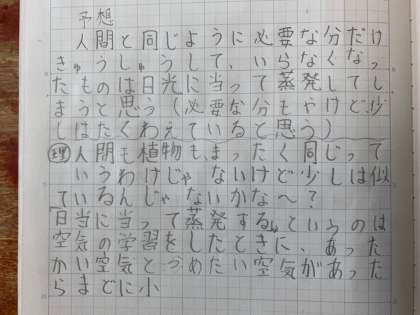 予想
人間と同じように必要な分だけ
きゅうしゅうして、いらなくなっ
たものは日光に当って蒸発してし
まうと思う(必要な分もやけど少
しはたくわえていると思う)
理人間も植物も、まったく同じって
いうわけじゃないけど少しは似
ているんじゃないかな〜?
日当に当って蒸発するというのは
空気の学習をしたときに、あった
かい空気とつめたい空気があった
らまどに小